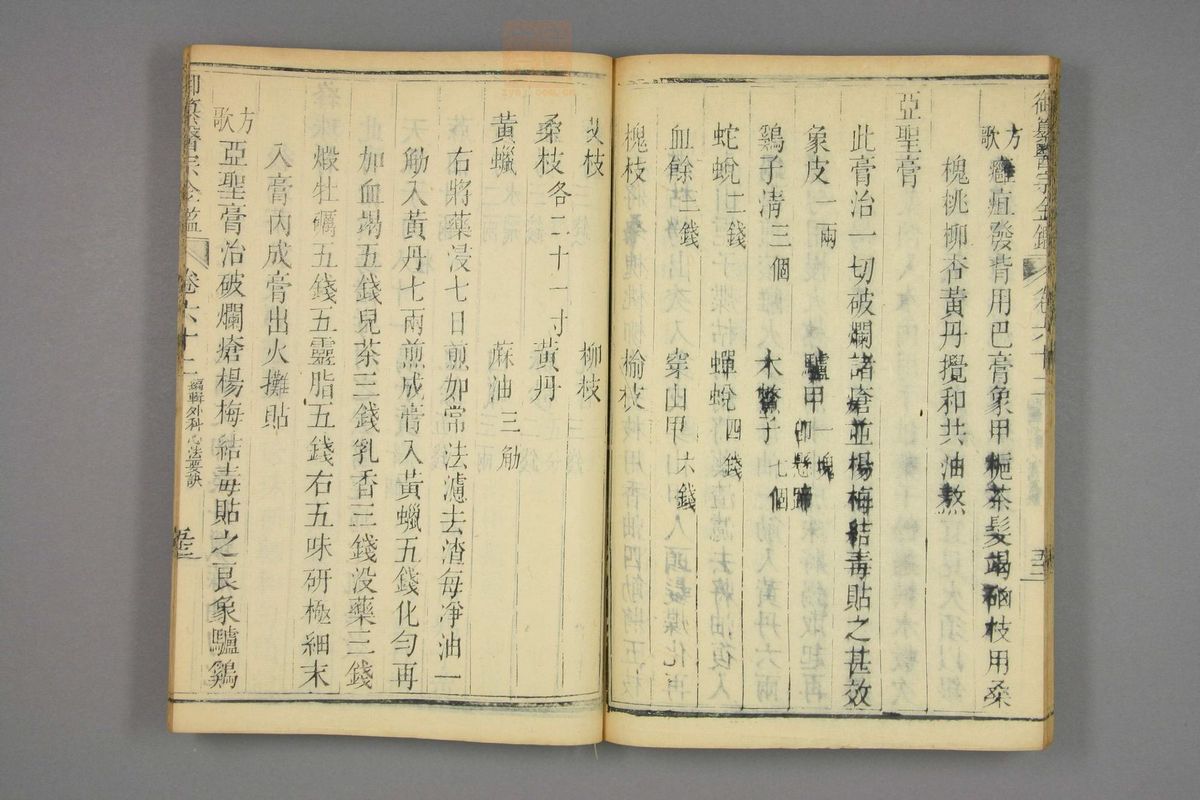 御纂醫宗金鑑 卷六十二
方歌 癰疽發背用巴膏象甲梔茶髮竭硇枝用桑
槐桃柳杏黃丹攪和共油熬
亞聖膏
此膏治一切破爛諸瘡並楊梅結毒貼之甚效
象皮一兩 驢甲一塊 即懸蹄
鷄子清三個 木鱉子七個
蛇蛻二錢 蟬蛻四錢
血餘三錢 穿山甲六錢
槐枝 榆枝
艾枝 柳枝
桑枝各二十一寸 黃丹
黃蠟 蔴油三觔
右將藥浸七日煎如常法濾去渣每凈油一
觔入黃丹七兩煎成膏入黃蠟五錢化勻再
加血竭五錢兒茶三錢乳香三錢没藥三錢
煅牡礪五錢五靈脂五錢右五味研極細末
入膏內成膏出火攤貼
方歌 亞聖膏治破爛瘡楊梅結毒貼之良象驢鷄
御纂醫宗金鑑 卷六十二 編輯外科心法要訣